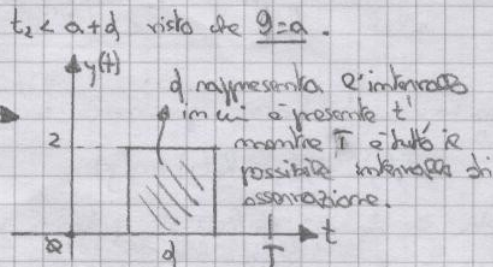 t₂ < a+d, visto che g=a.
y(t)
d rappresenta l'intervallo
in cui è presente t'
2
mentre T è tutto il
possibile intervallo di
osservazione.
0
d
T
t